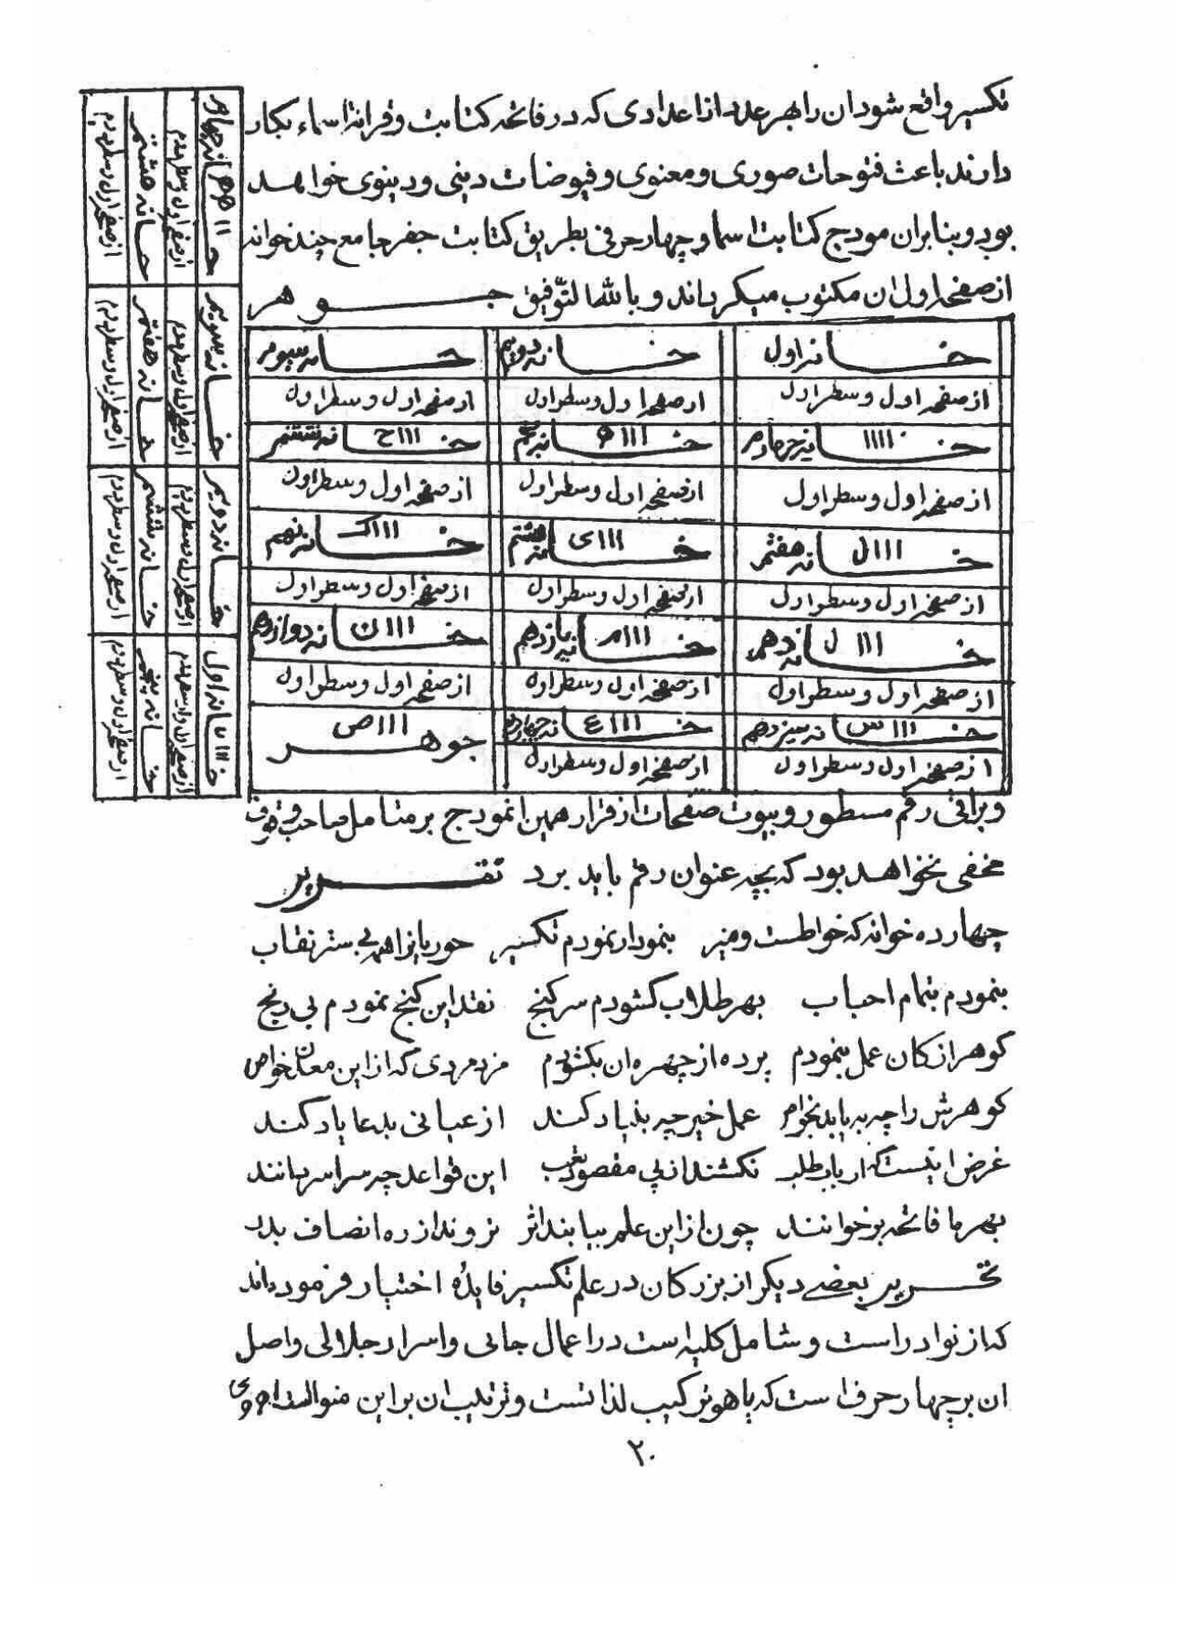 تکسیر واقع شود ان را بهر عدد از اعدادی که در فاتحه کتابت و قرائة اسماء بکار
دارند باعث فتوحات صوری و معنوی و فیوضات دینی و دینوی خواهد
بود و بنابران مودج کتابت اسما و چهار حرفی بطریق کتابت جفر جامع چند خوانه
از صفحه اول ان مکتوب میکرداند و بالله التوفیق جوهر
خانه اول
خانه دویم
خانه سیوم
از صفحه اول و سطر اول
از صفحه اول و سطر اول
از صفحه اول و سطر اول
خانه چهارم
خانه پنجم
خانه ششم
از صفحه اول و سطر اول
از صفحه اول و سطر اول
از صفحه اول و سطر اول
خانه هفتم
خانه هشتم
خانه نهم
از صفحه اول و سطر اول
از صفحه اول و سطر اول
از صفحه اول و سطر اول
خانه دهم
خانه یازدهم
خانه دوازدهم
از صفحه اول و سطر اول
از صفحه اول و سطر اول
از صفحه اول و سطر اول
خانه سیزدهم
خانه چهاردهم
جوهر
از صفحه اول و سطر اول
از صفحه اول و سطر اول
خانه اول
از صفحه اول و سطر دوم
خانه پنجم
از صفحه اول و سطر دوم
خانه دویم
از صفحه اول و سطر دوم
خانه ششم
از صفحه اول و سطر دوم
خانه سویم
از صفحه اول و سطر دوم
خانه هفتم
از صفحه اول و سطر دوم
خانه چهارم
از صفحه اول و سطر دوم
خانه هشتم
از صفحه اول و سطر دوم
و براتی رقم مسطور و بیوت صفحات از قرار همین انمودج بر متامل صاحب وقوف
مخفی نخواهد بود که بچه عنوان رقم باید برد تقریر
چهارده خوانه که خواطست و منیر بنمودار نمودم تکسیر حوریانرا همه بی ستر نقاب
بنمودم بتمام احباب بهر طلاب کشودم سر کنج نقد این کنج نمودم بی رنج
کوهر از کان عمل بنمودم پرده از چهره ان بکشودم مزد مردی که از این معدن خواص
کوهرش را چه به یابد بخوام عمل خیر چه بنیاد کند از عیانی بدعا یاد کند
غرض اینست که ارباب طلب نکشند از پی مقصود تعب این قواعد چه سراسر بانند
بهر ما فاتحه بر خوانند چون از این علم بیابند اثر نروند از ره انصاف بدر
تحریر بعضے دیکر از بزرکان در علم تکسیر فایدۀ اختیار فرموده‌اند
که از نوادر است و شامل کلیه است در اعمال جانی و اسرار جلالی و اصل
ان بر چهار حرف است که یا هو ترکیب لذاتست و ترتیب ان بر این منوالست
۲۰